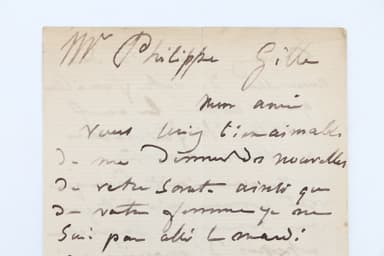 Mr Philippe Gille
Mon ami
Vous bien aimable
de me donner des nouvelles
de votre Santé ainsi que
de votre femme je ne
suis pas allé le mardi